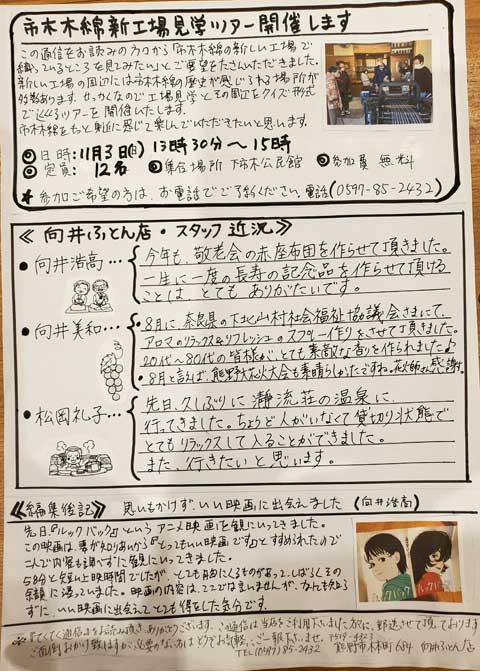 市木木綿新工場見学ツアー開催します
この通信をお読みの方々から「市木木綿の新しい工場で
織っているところを見てみたい」とご要望をたくさんいただきました。
新しい工場の周辺には市木木綿の歴史が感じられる場所が
多数あります。せっかくなので工場見学とその周辺をクイズ形式
でめぐるツアーを開催いたします。
市木木綿をもっと身近に感じて楽しんでいただきたいと思います。
◎日時:11月3日(日) 13時30分〜15時
◎定員:12名 ◎集合場所 下市木公民館 ◎参加費 無料
＊参加ご希望の方は、お電話でご予約ください。電話(0597-85-2432)
≪向井ふとん店・スタッフ近況≫
●向井浩高…
今年も、敬老会の赤座布団を作らせて頂きました。
一生に一度の長寿の記念品を作らせて頂ける
ことは、とてもありがたいです。
●向井美和…
・8月に、奈良県の下北山村社会福祉協議会さまにて、
アロマのリラックス&リフレッシュのスプレー作りをさせて頂きました。
20代〜80代の皆様が、とても素敵な香りを作られました♪
・8月と言えば、熊野大花火大会も素晴らしかったですね。花火師さん感謝。
●松岡礼子…
先日、久しぶりに瀞流荘の温泉に
行ってきました。ちょうど人がいなくて貸切り状態で
とてもリラックスして入ることができました。
また、行きたいと思います。
≪編集後記≫ 思いもかけず、いい映画に出会えました (向井浩高)
先日、『ルックバック』というアニメ映画を観にいってきました。
この映画は、妻が知りあいから『とってもいい映画です』とすすめられたので
二人で内容も調べずに観にいってきました。
58分と短い上映時間でしたが、とても胸にくるものがあって、しばらくその
余韻に浸っていました。映画の内容は、ここでは言いませんが、なんも知ら
ずに、いい映画に出会えてとても得をした気分です。
ルックバック
※『てくてく通信』をお読み頂き、ありがとうございます。この通信は当店をご利用下さいました方に、郵送させて頂いております
ご面倒おかけ致しますが、必要のない方はどうぞお気軽に、ご一報下さいませ。〒519-4323
TEL(0597)85-2432 熊野市木本町 向井ふとん店